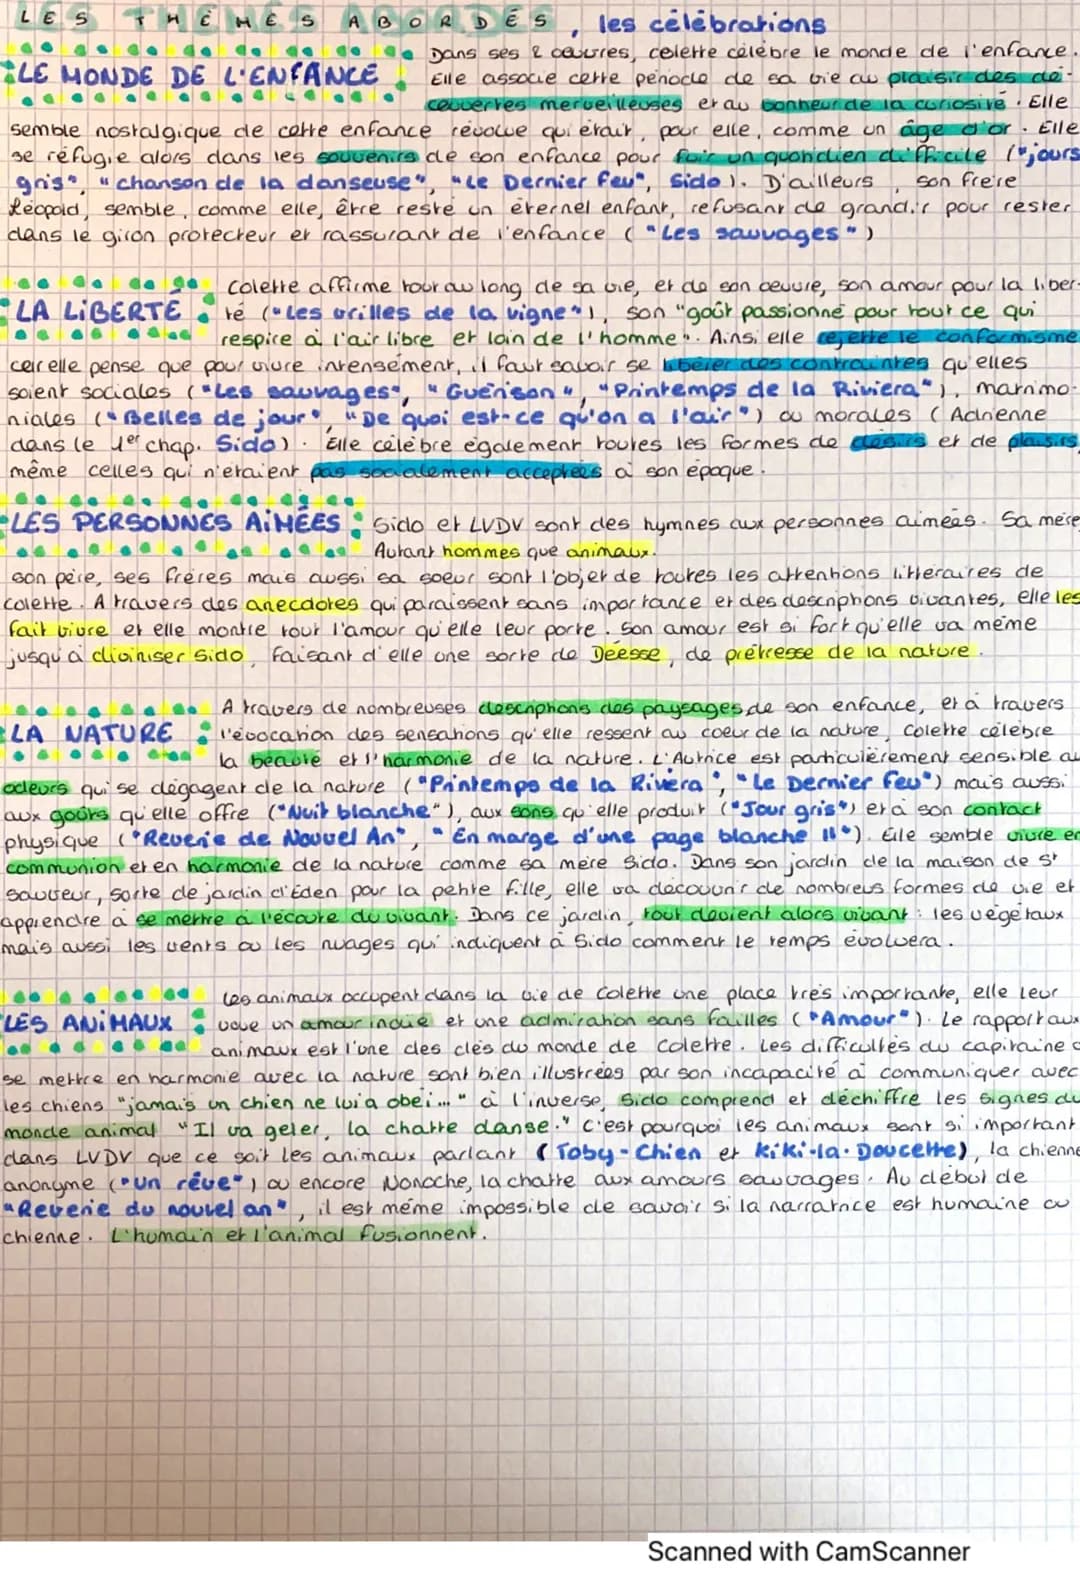 LES THÈMES ABORDÉS, les célébrations
Dans ses 2 œuvres, colette célèbre le monde de l'enfance.
LE MONDE DE L'ENFANCE Elle associe cette période de sa vie au plaisir des dé-
couvertes merveilleuses et au bonheur de la curiosité. Elle
semble nostalgique de cette enfance révolue qui était, pour elle, comme un âge d'or. Elle
se réfugie alors dans les souvenirs de son enfance pour fuir un quotidien difficile ("jours
gris", "chanson de la danseuse", "Le Dernier Feu", Sido). D'ailleurs, son frère
Léopold, semble, comme elle, être resté un éternel enfant, refusant de grandir pour rester
dans le giron protecteur et rassurant de l'enfance ("Les sauvages")
colette affirme tout au long de sa vie, et de son oeuvre, son amour pour la liber-
LA LIBERTÉ té ("Les vrilles de la vigne"), son "goût passionné pour tout ce qui
respire à l'air libre et loin de l'homme". Ainsi elle rejette le conformisme
car elle pense que pour vivre intensément, il faut savoir se libérer des contraintes qu'elles
soient sociales ("Les sauvages", "Guérison", "Printemps de la Riviera"), matrimo-
niales ("Belles de jour", "De quoi est-ce qu'on a l'air") ou morales (Adrienne
dans le 1er chap. Sido). Elle célèbre également toutes les formes de désirs et de plaisirs,
même celles qui n'étaient pas socialement acceptées à son époque.
LES PERSONNES AIMÉES : Sido et LVDV sont des hymnes aux personnes aimées. Sa mère,
Autant hommes que animaux.
son père, ses frères mais aussi sa soeur sont l'objet de toutes les attentions littéraires de
colette. A travers des anecdotes qui paraissent sans importance et des descriptions vivantes, elle les
fait vivre et elle montre tout l'amour qu'elle leur porte. Son amour est si fort qu'elle va même
jusqu'à diviniser Sido, faisant d'elle une sorte de Déesse, de prêtresse de la nature.
A travers de nombreuses descriptions des paysages de son enfance, et à travers
LA NATURE l'évocation des sensations qu'elle ressent au coeur de la nature, Colette célèbre
la beauté et l'harmonie de la nature. L'Autrice est particulièrement sensible au
odeurs qui se dégagent de la nature ("Printemps de la Rivera", "Le Dernier Feu") mais aussi
aux goûts qu'elle offre ("Nuit blanche"), aux sons qu'elle produit ("Jour gris") et à son contact
physique ("Reverie de Nouvel An", "En marge d'une page blanche II"). Elle semble vivre en
communion et en harmonie de la nature comme sa mère Sido. Dans son jardin de la maison de St
Sauveur, sorte de jardin d'Eden pour la petite fille, elle va découvrir de nombreus formes de vie et
apprendre à se mettre à l'écoute du vivant. Dans ce jardin, tout devient alors vivant : les végétaux
mais aussi les vents ou les nuages qui indiquent à Sido comment le temps évoluera.
Les animaux occupent dans la vie de Colette une place très importante, elle leur
LES ANIMAUX voue un amour inouïe et une admiration sans failles ("Amour"). Le rapport aux
animaux est l'une des clés du monde de Colette. Les difficultés du capitaine
se mettre en harmonie avec la nature sont bien illustrées par son incapacité à communiquer avec
les chiens "jamais un chien ne lui a obéi..." à l'inverse, Sido comprend et déchiffre les signes du
monde animal "Il va geler, la chatte danse." C'est pourquoi les animaux sont si important
dans LVDV que ce soit les animaux parlant (Toby-Chien et Kiki-la-Doucette), la chienne
anonyme ("Un rêve") ou encore Nonoche, la chatte aux amours sauvages. Au début de
"Reverie du nouvel an", il est même impossible de savoir si la narratrice est humaine ou
chienne. L'humain et l'animal fusionnent.
Scanned with CamScanner